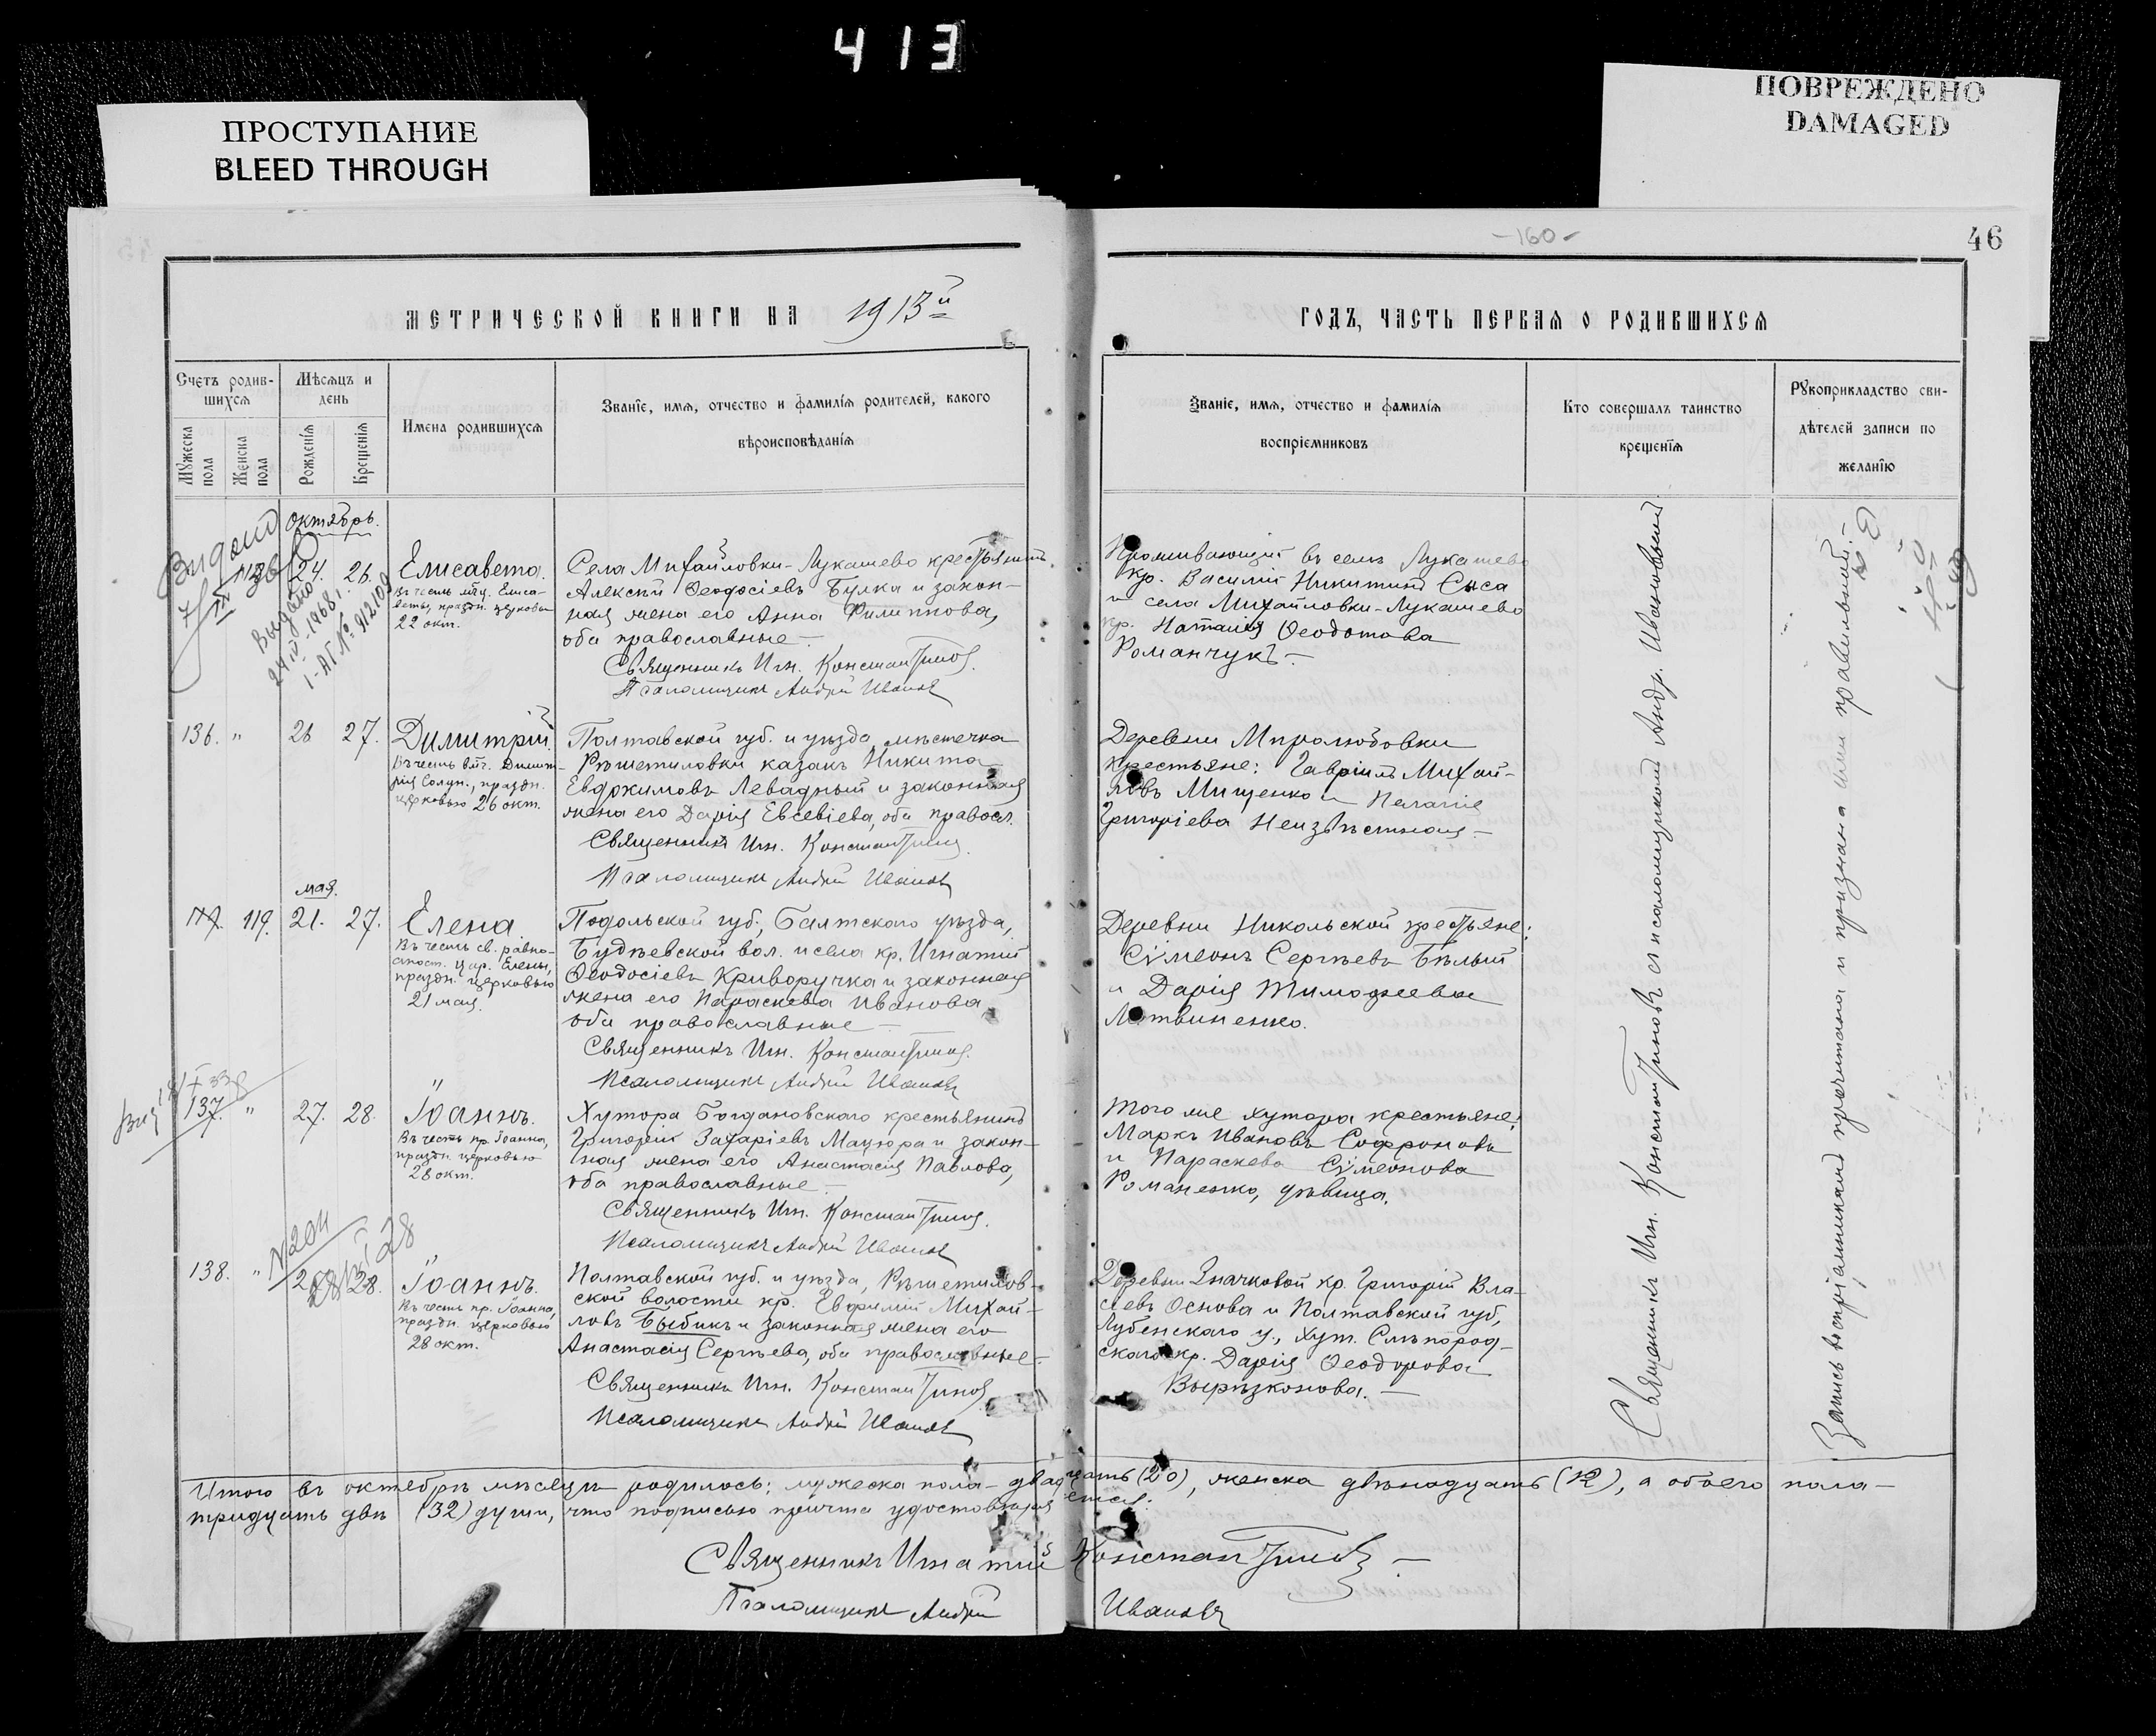 413
ПРОСТУПАНИЕ
BLEED THROUGH
ПОВРЕЖДЕНО
DAMAGED
-160-
46
МЕТРИЧЕСКОЙ КНИГИ НА 1913й
ГОДЪ, ЧАСТЬ ПЕРВАЯ О РОДИВШИХСЯ
Счетъ родив-
шихся
Мужеска
пола
Женска
пола
Мѣсяцъ и
день
Рожденія
Крещенія
Имена родившихся
Званіе, имя, отчество и фамилія родителей, какого
вѣроисповѣданія
Званіе, имя, отчество и фамилія
воспріемниковъ
Кто совершалъ таинство
крещенія
Рукоприкладство сви-
дѣтелей записи по
желанію
октябрь.
Выдано
24.IV.1968 г.
I-АГ № 912109
24. 26.
Елисавета.
Въ честь мц. Елиса-
веты, праздн. церковью
22 окт.
Села Михайловки-Лукашево крестьянинъ
Алексѣй Ѳеодосіевъ Булка и закон-
ная жена его Анна Филиппова,
оба православные-
Священникъ Игн. Константиновъ.
Псаломщикъ Андрей Ивановъ
Проживающій въ селѣ Лукашево
кр. Василій Никитинъ Сыса
и села Михайловки-Лукашево
кр. Наталія Ѳеодотова
Романчукъ.-
136. " 26 27.
Димитрій.
Въ честь вмч. Димит-
рія Солун., праздн.
церковью 26 окт.
Полтавской губ. и уѣзда, мѣстечка
Рѣшетиловки казакъ Никита
Евдокимовъ Левадный и законная
жена его Дарія Евсевіева, оба правосл.
Священникъ Игн. Константиновъ.
Псаломщикъ Андрей Ивановъ
Деревни Миролюбовки
крестьяне: Гавріилъ Михай-
ловъ Мищенко и Пелагія
Григоріева Неизвѣстная-
мая.
119. 21. 27.
Елена
Въ честь св. равно-
апост. цар. Елены,
праздн. церковью
21 мая.
Подольской губ., Балтскаго уѣзда,
Будѣевской вол. и села кр. Игнатій
Ѳеодосіевъ Криворучка и законная
жена его Параскева Иванова,
оба православные-
Священникъ Игн. Константиновъ.
Псаломщикъ Андрей Ивановъ
Деревни Никольской крестьяне:
Сѵмеонъ Сергѣевъ Бѣлый
и Дарія Тимофеева
Литвиненко.
137. " 27. 28.
"
Іоаннъ.
Въ честь пр. Іоанна,
праздн. церковью
28 окт.
Хутора Богдановскаго крестьянинъ
Григорій Захаріевъ Мацюра и закон-
ная жена его Анастасія Павлова,
оба православные-
Священникъ Игн. Константиновъ.
Псаломщикъ Андрей Ивановъ
Того же хутора крестьяне:
Маркъ Ивановъ Софроновъ
и Параскева Сѵмеонова
Романенко, дѣвица.
138. " 28.
"
Іоаннъ.
Въ честь пр. Іоанна,
праздн. церковью
28 окт.
Полтавской губ. и уѣзда, Рѣшетилов-
ской волости кр. Евфимій Михай-
ловъ Быбикъ и законная жена его
Анастасія Сергѣева, оба православные-
Священникъ Игн. Константиновъ.
Псаломщикъ Андрей Ивановъ
Деревни Значковой кр. Григорій Вла-
сіевъ Основа и Полтавской губ,
Лубенскаго у., хут. Слѣпород-
скаго кр. Дарія Ѳеодорова
Вырѣзконова.-
Священникъ Игн. Константиновъ съ псаломщикомъ Андр. Ивановымъ
Запись воспріемниками прочитана и признана ими правильной.-
Итого въ октябрѣ мѣсяцѣ родилось: мужеска пола-двадцать (20), женска двѣнадцать (12), а обоего пола-
тридцать двѣ (32) души, что подписью причта удостовѣряется:
Священникъ Игнатій Константиновъ-
Псаломщикъ Андрей Ивановъ